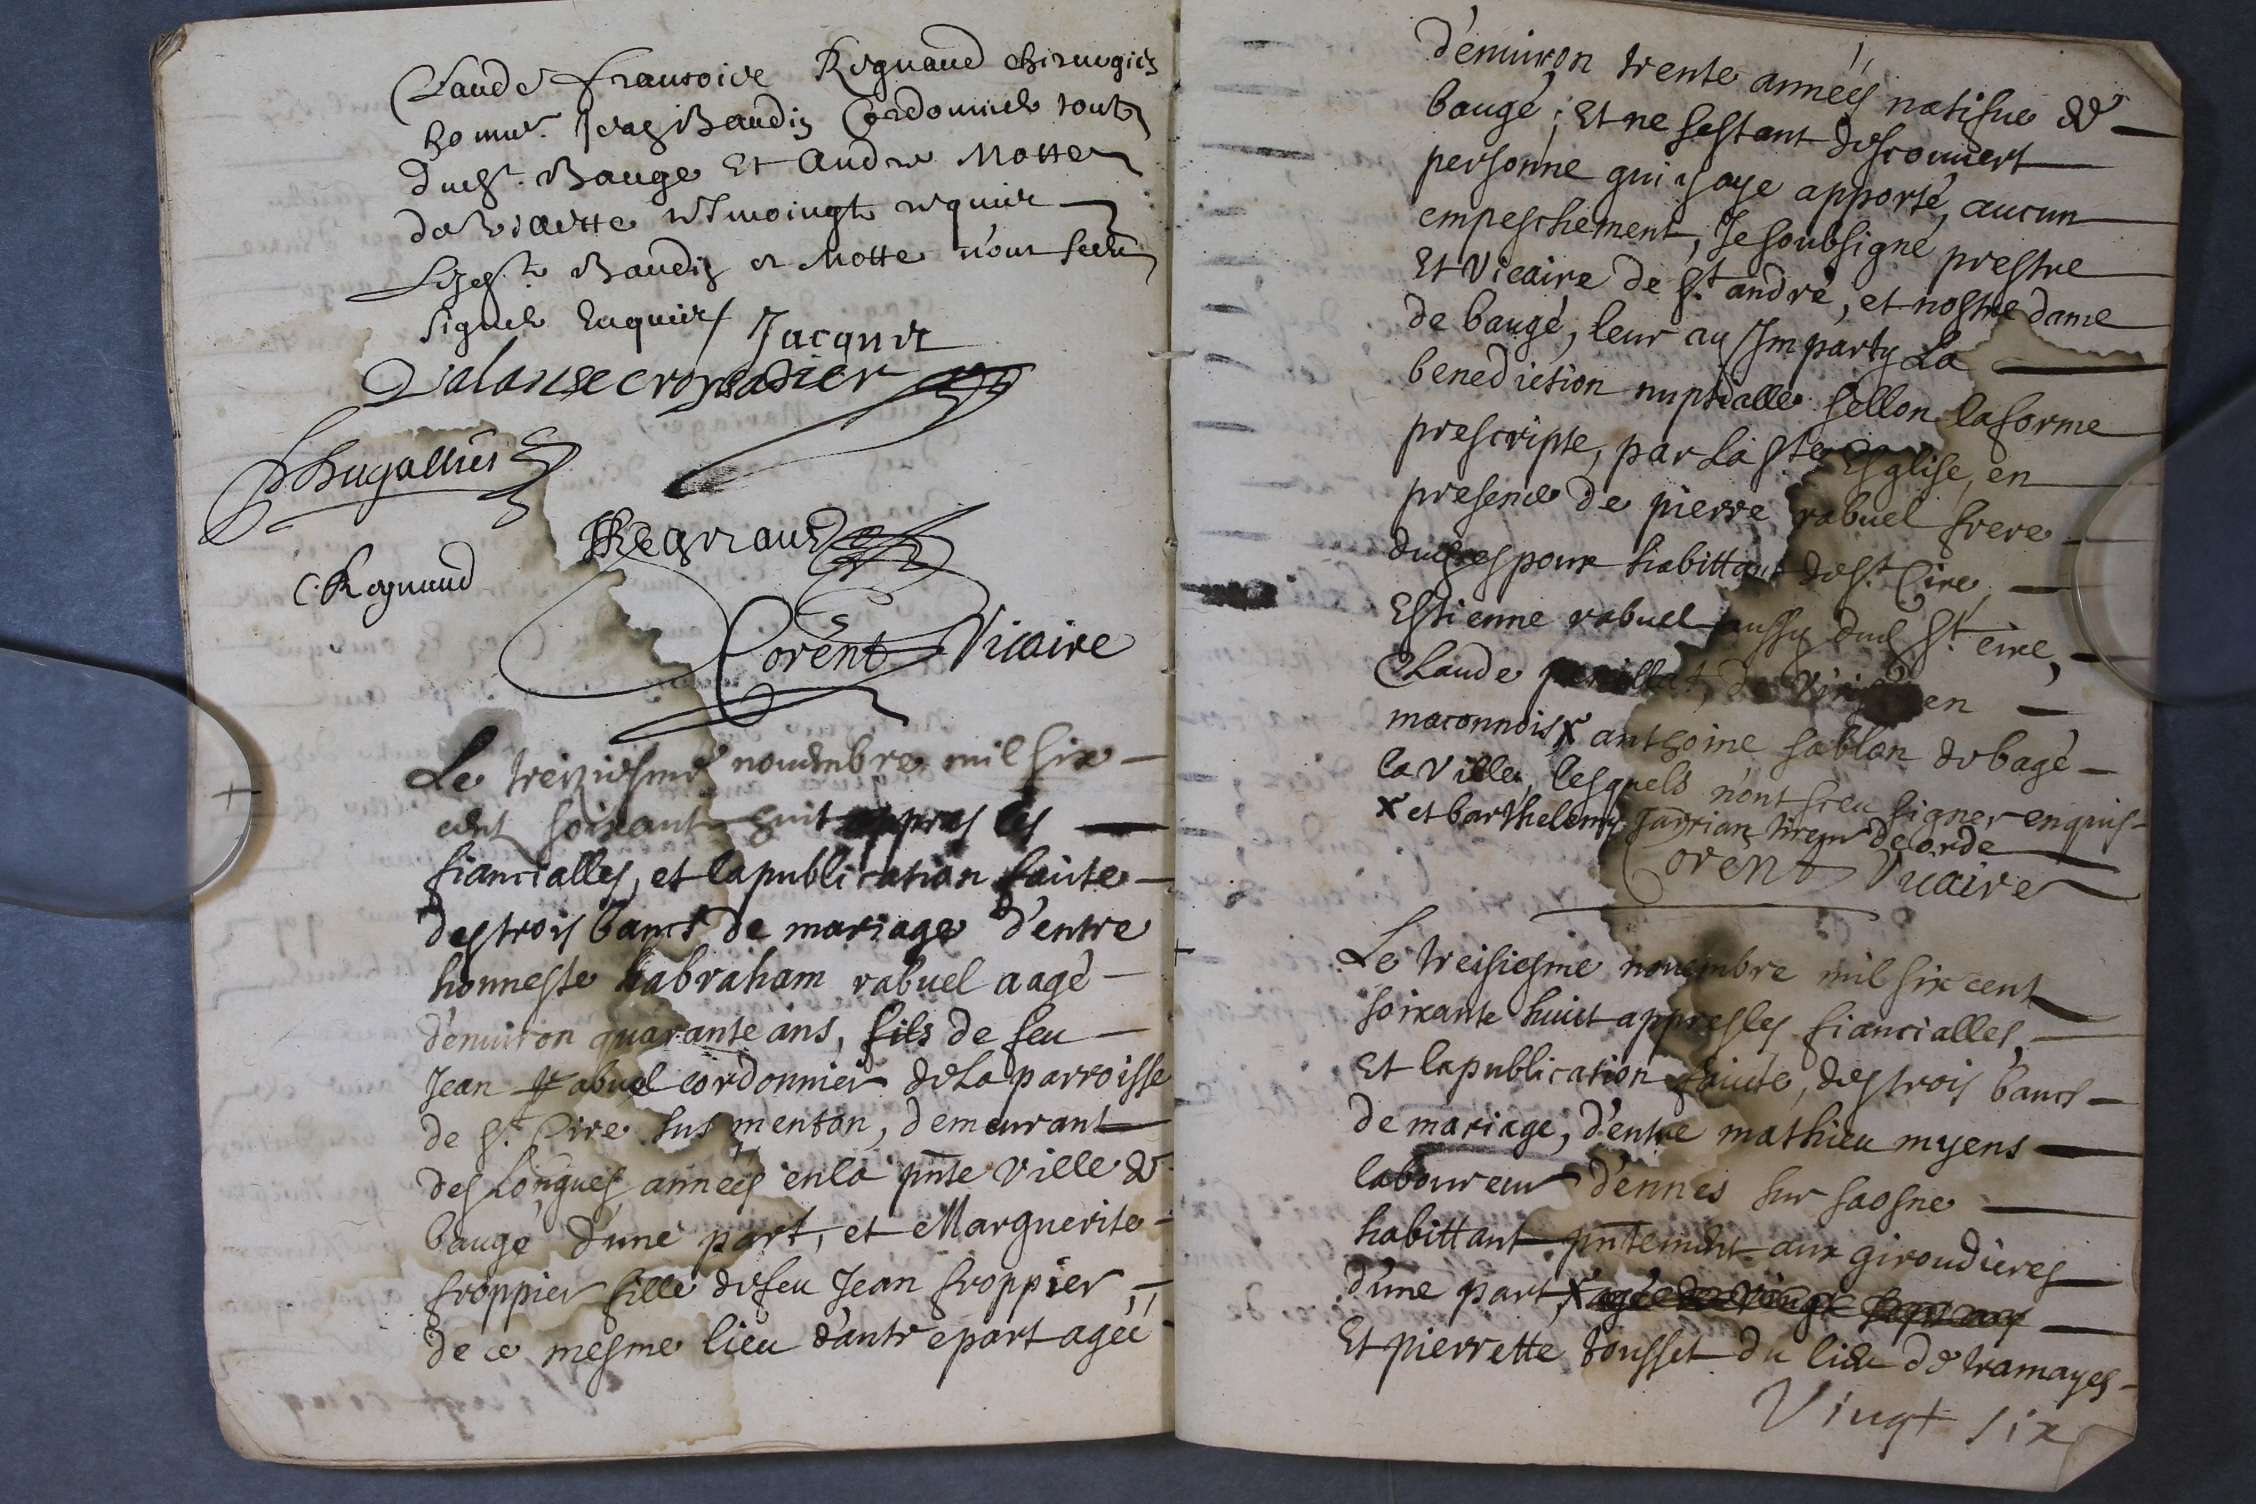 Claude francoise Regnaud chirurgien
Jean Baudin Cordonnier tout
dud. Bauge Et Andre Motte
de
Baudin et Motte n'ont sceu
signer enquis / Jacquet
Dalanse
Regnaud
C. Regnaud
Corent Vicaire
Le treiziesme nouembre mil six
cent soixant huit appres les
fiancialles, et la publication faicte
des trois bancs de mariage d'entre
honneste habraham rabuel aagé
d'enuiron quarante ans, fils de feu
Jean rabuel cordonnier de la parroisse
de St. Cire sus menton, demeurant
des Longues années en la pnte Ville de
baugé d'une part, et Marguerite
froppier fille de feu Jean froppier,
de ce mesme lieu d'autre part agée
d'enuiron trente années natifue de
baugé; Et ne sestant descouuert
personne qui y aye apporté, aucun
empeschement, Je soubsigné prestre
Et Vicaire de St. andré, et nostre dame
de baugé, leur ay Imparty La
benediction nuptialle sellon la forme
prescripte, par La Ste Esglise, en
presence de pierre rabuel frere
dud espoux habittant de St. Cire,
Estienne rabuel aussy dud St. cire,
Claude de en
maconnois x anthoine sablon de bagé
la Ville, lesquels n'ont sceu signer enquis
x et barthelemy Jarrian tireur de corde
Corent Vicaire
Le treisiesme nouembre mil six cent
soixante huict appres les fiancialles,
Et la publication faicte, des trois bancs
de mariage, d'entre mathieu myens
laboureur d'ennes sur saosne
habittant pntement aux giroudieres
d'une part, x agé de Vingt sept ans
Et pierrette tousset du lieu de tramayes
Vingt six